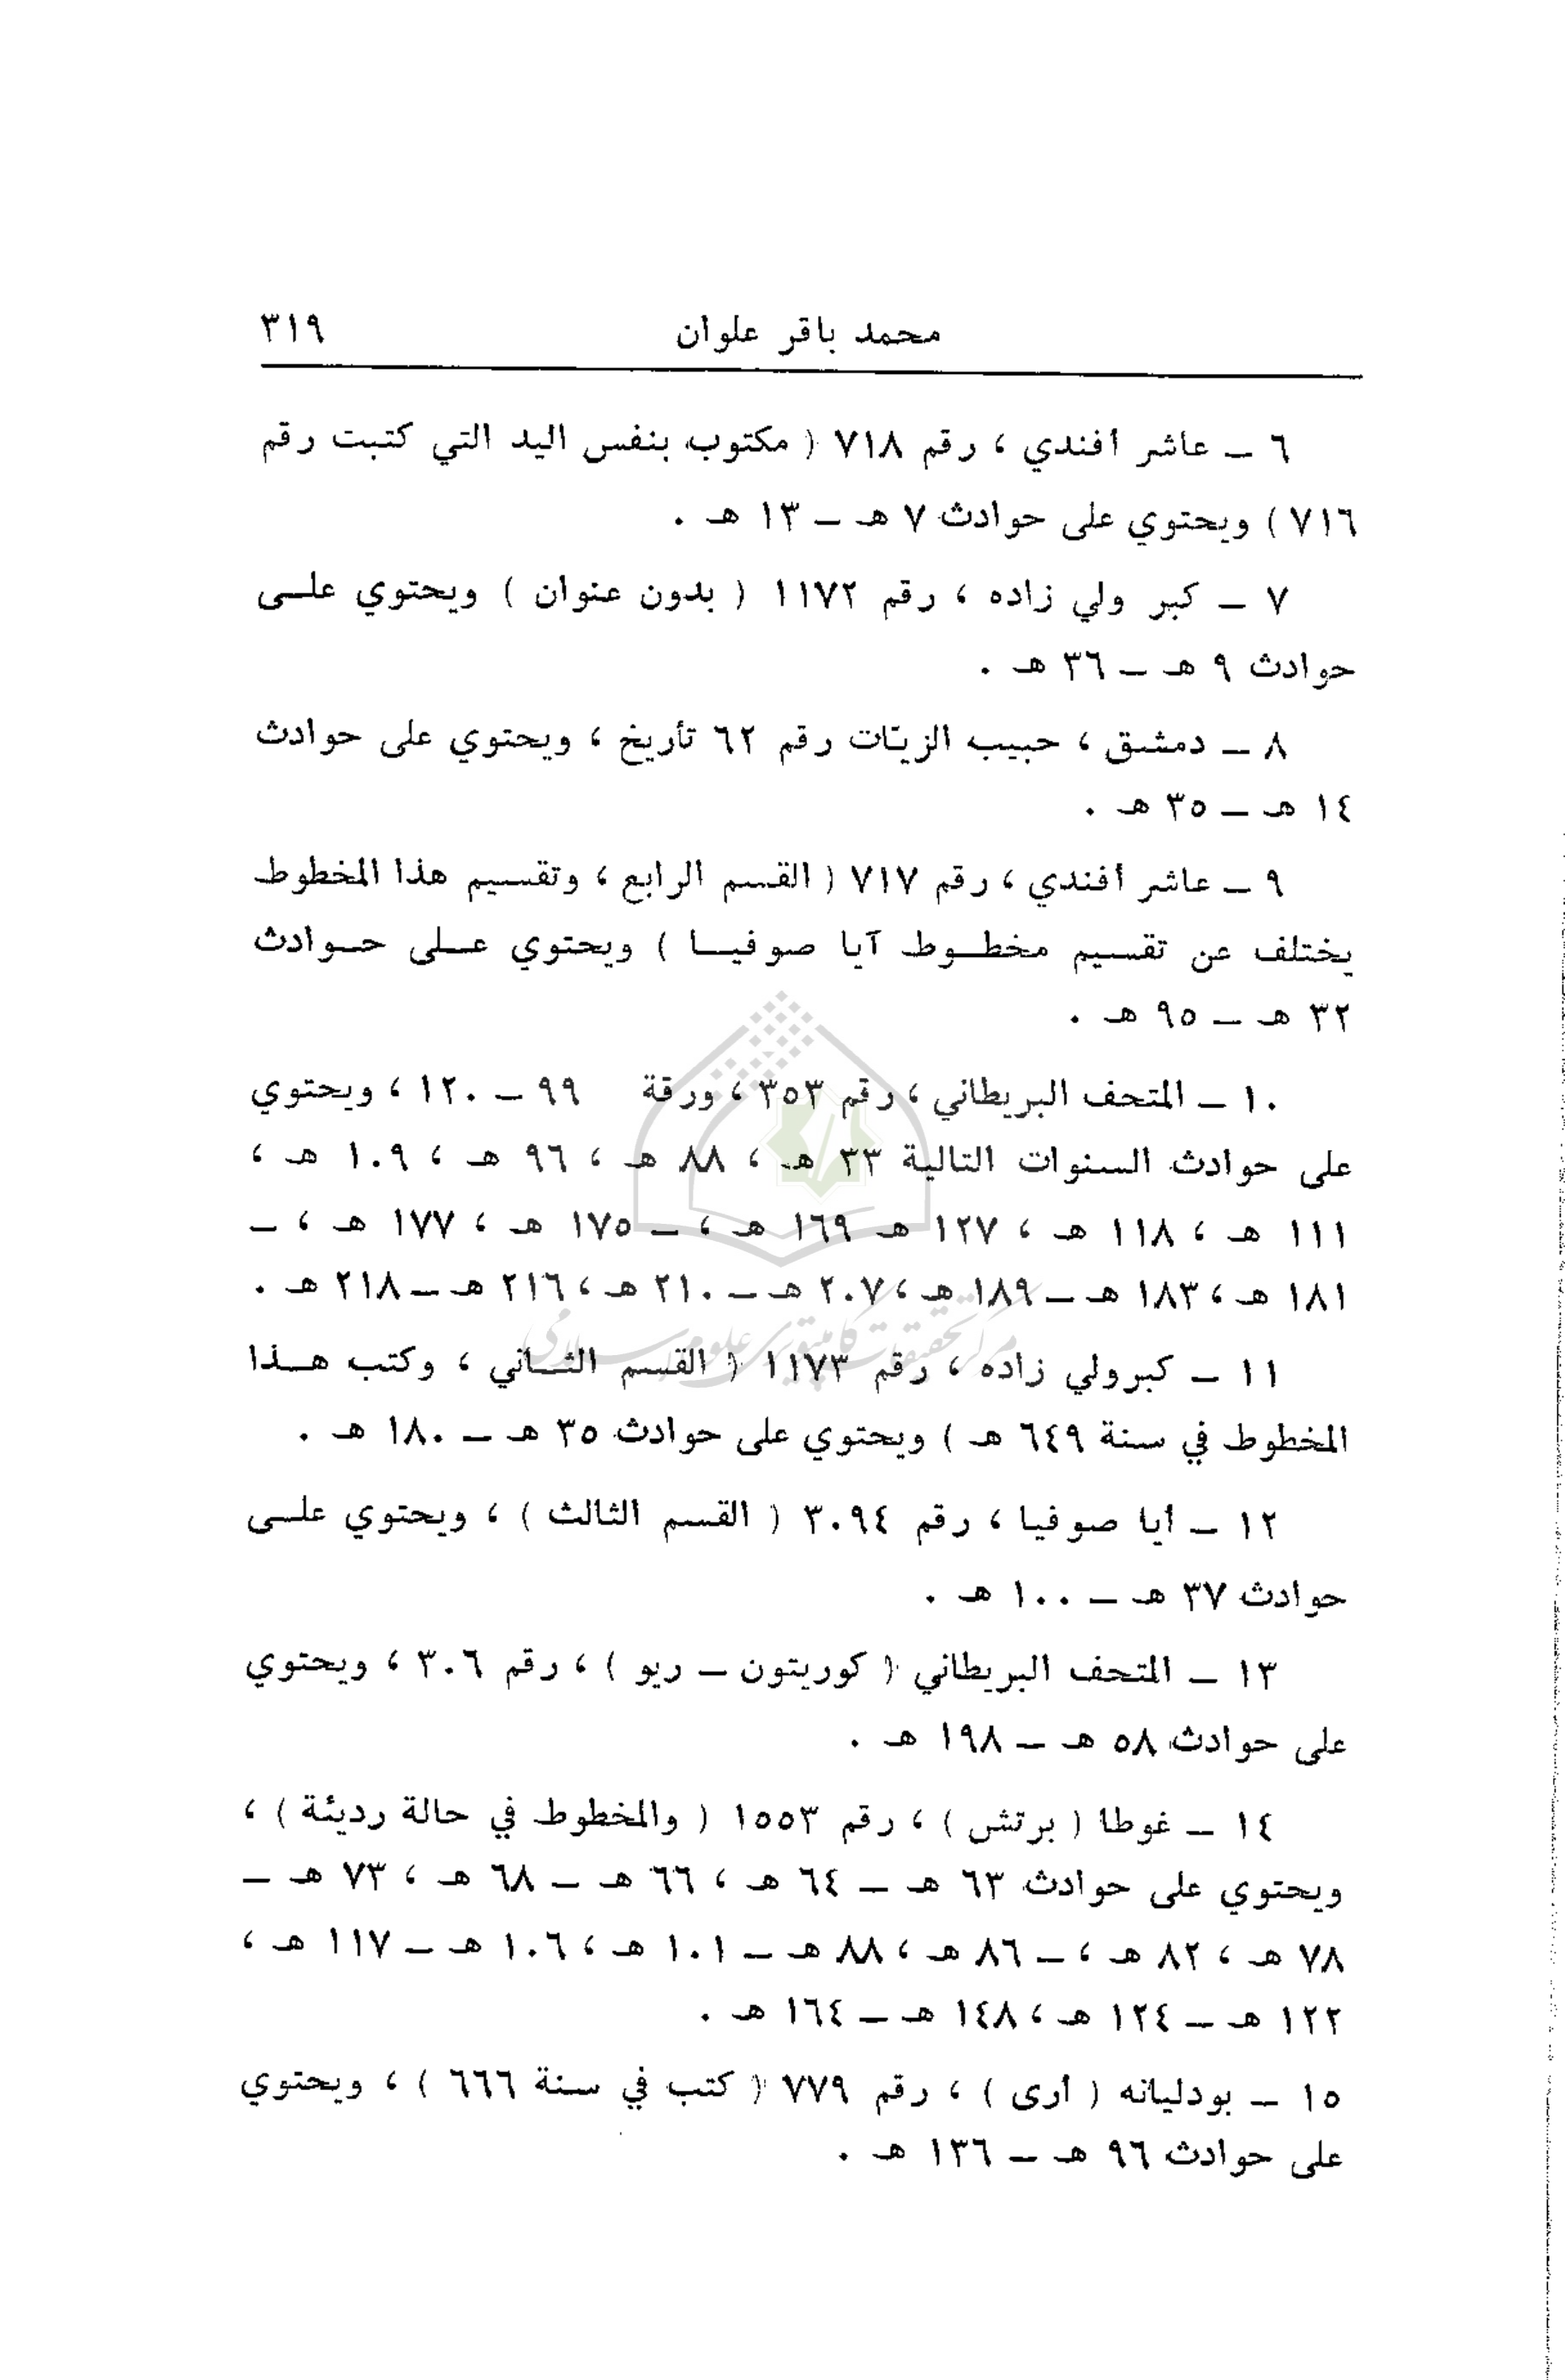 محمد باقر علوان ٣١٩
٦ ــ عاشر أفندي ، رقم ٧١٨ ( مكتوب بنفس اليد التي كتبت رقم
٧١٦ ) ويحتوي على حوادث ٧ هـ ــ ١٣ هـ .
٧ ــ كبر ولي زاده ، رقم ١١٧٢ ( بدون عنوان ) ويحتوي علــى
حوادث ٩ هـ ــ ٣٦ هـ .
٨ ــ دمشق ، حبيب الزيّات رقم ٦٢ تأريخ ، ويحتوي على حوادث
١٤ هـ ــ ٣٥ هـ .
٩ ــ عاشر أفندي ، رقم ٧١٧ ( القسم الرابع ، وتقسيم هذا المخطوط
يختلف عن تقسيم مخطــوط آيا صوفيــا ) ويحتوي عــلى حــوادث
٣٢ هـ ــ ٩٥ هـ .
١٠ ــ المتحف البريطاني ، رقم ٣٥٣ ، ورقة ٩٩ ــ ١٢٠ ، ويحتوي
على حوادث السنوات التالية ٣٣ هـ ، ٨٨ هـ ، ٩٦ هـ ، ١٠٩ هـ ،
١١١ هـ ، ١١٨ هـ ، ١٢٧ هـ ١٦٩ هـ ، ــ ١٧٥ هـ ، ١٧٧ هـ ، ــ
١٨١ هـ ، ١٨٣ هـ ــ ١٨٩ هـ ، ٢٠٧ هـ ــ ٢١٠ هـ ، ٢١٦ هـ ــ ٢١٨ هـ .
مركز تحقيقات كامپيوترى علوم اسلامى
١١ ــ كبرولي زاده ، رقم ١١٧٣ ( القسم الثــاني ، وكتب هــذا
المخطوط في سنة ٦٤٩ هـ ) ويحتوي على حوادث ٣٥ هـ ــ ١٨٠ هـ .
١٢ ــ أيا صوفيا ، رقم ٣٠٩٤ ( القسم الثالث ) ، ويحتوي علــى
حوادث ٣٧ هـ ــ ١٠٠ هـ .
١٣ ــ المتحف البريطاني ( كوريتون ــ ريو ) ، رقم ٣٠٦ ، ويحتوي
على حوادث ٥٨ هـ ــ ١٩٨ هـ .
١٤ ــ غوطا ( برتش ) ، رقم ١٥٥٣ ( والمخطوط في حالة رديئة ) ،
ويحتوي على حوادث ٦٣ هـ ــ ٦٤ هـ ، ٦٦ هـ ــ ٦٨ هـ ، ٧٣ هـ ــ
٧٨ هـ ، ٨٢ هـ ، ــ ٨٦ هـ ، ٨٨ هـ ــ ١٠١ هـ ، ١٠٦ هـ ــ ١١٧ هـ ،
١٢٢ هـ ــ ١٢٤ هـ ، ١٤٨ هـ ــ ١٦٤ هـ .
١٥ ــ بودليانه ( أرى ) ، رقم ٧٧٩ ( كتب في سنة ٦٦٦ ) ، ويحتوي
على حوادث ٩٦ هـ ــ ١٣٦ هـ .